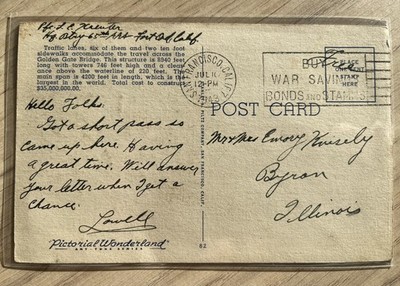 Pfc. L. E.
Hq. Btry 65th AAA Fort Ord, Calif.
Traffic lanes, six of them and two ten foot
sidewalks accommodate the travel across the
Golden Gate Bridge. This structure is 8940 feet
long with towers 746 feet high and a clear-
ance above the waterline of 220 feet. The
main span is 4200 feet in length, which is the
largest in the world. Total cost to construct
$35,000,000.00.
Hello Folks.
Got a short pass so
came up here. Having
a great time. Will answer
your letter when I get a
chance.
Lowell
Pictorial Wonderland
ART TONE SERIES
SAN FRANCISCO, CALIF.
JUL
12 - PM
BUY
WAR SAVINGS
BONDS AND STAMPS
Free
PLACE
ONE CENT
STAMP
HERE
POST CARD
Mr & Mrs Emory Knisely
Byron
Illinois
62